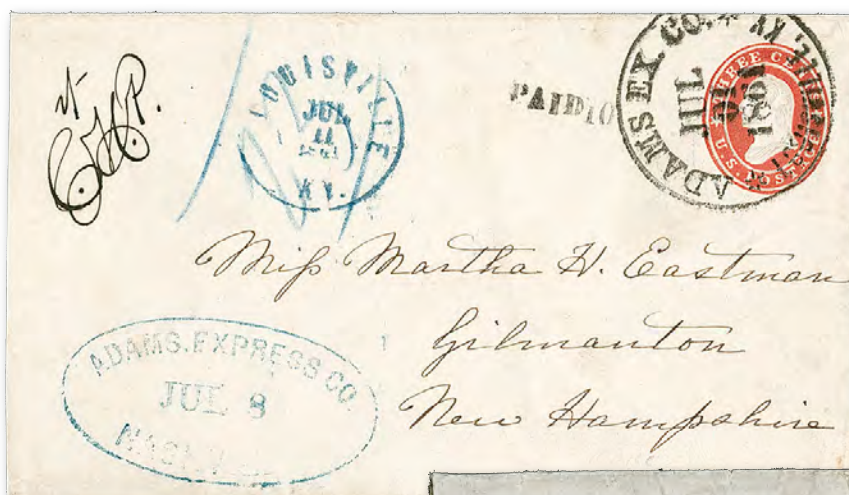 LOUISVILLE
JUL
11
1861
KY.
PAID 10
ADAMS EX. CO. * LOUISVILLE, KY
JUL
10
1861
THREE CENTS
U.S. POSTAGE
Miss Martha H. Eastman
Gilmanton
New Hampshire
ADAMS. EXPRESS CO.
JUL 8